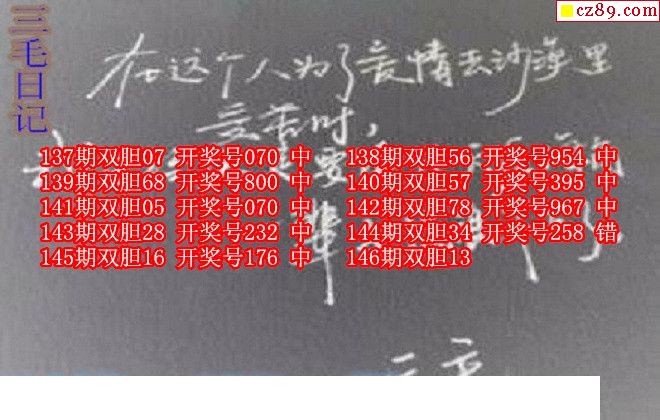 cz89.com
三毛日记
在这个人为了爱情去沙漠里
受苦时,
137期双胆07 开奖号070 中 138期双胆56 开奖号954 中
139期双胆68 开奖号800 中 140期双胆57 开奖号395 中
141期双胆05 开奖号070 中 142期双胆78 开奖号967 中
143期双胆28 开奖号232 中 144期双胆34 开奖号258 错
145期双胆16 开奖号176 中 146期双胆13